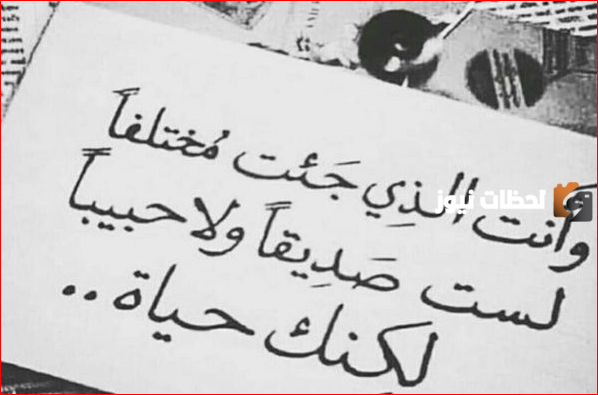 وأنت الذِي جَئت مُختلفاً
لست صَدِيقاً ولا حبيباً
لكنك حياة ..
لحظات نيوز